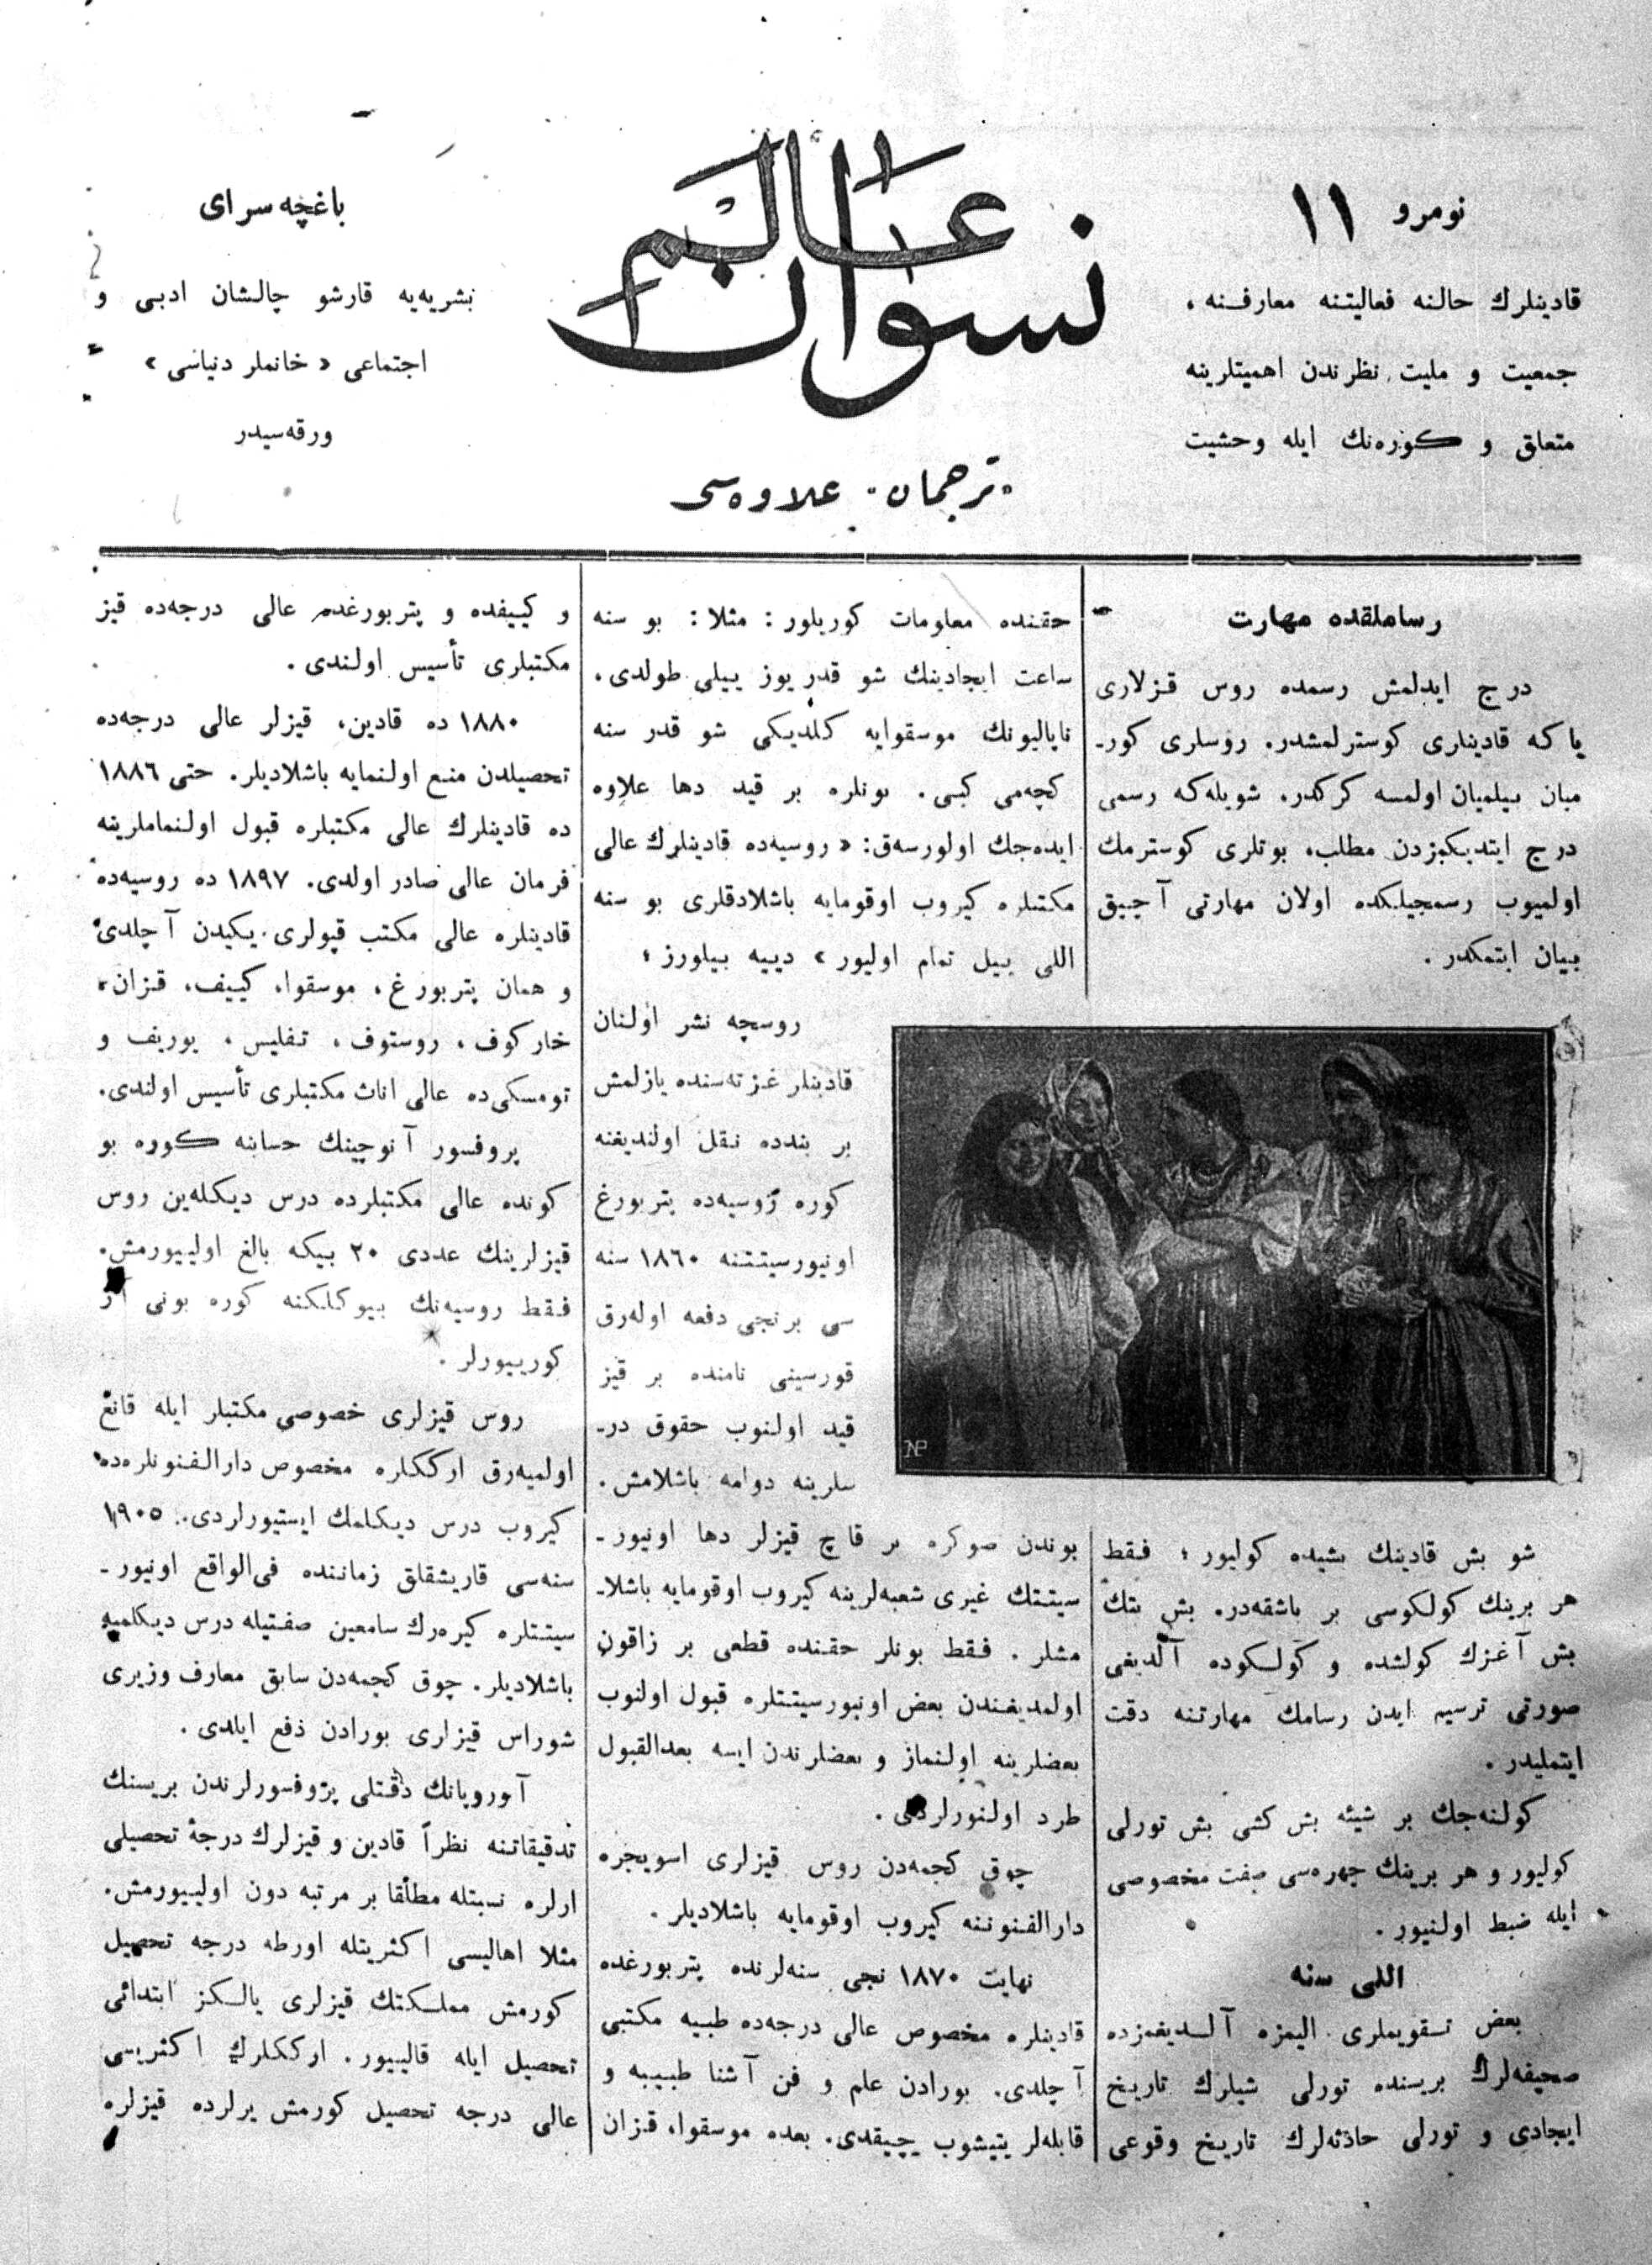 نومرو ١١
قادینلرك حالنه فعالیتنه معارفنه ،
جمعیت و ملیت نظرندن اهمیتلرینه
متعلق و كوره‌نك ایله وحشیت
عالم نسوان
«ترجمان» علاوه‌سی
باغچه سرای
بشریه‌یه قارشو چالشان ادبی و
اجتماعی « خانملر دنیاسی »
ورقه‌سیدر
رساملقده مهارت
درج ایدلمش رسمده روس قزلاری
یا كه قادینلری كوسترلمشدر. روسلری كور-
میان بیلمیان اولمسه كركدر. شویله‌كه رسمی
درج ایتدیكمزدن مطلب، بونلری كوسترمك
اولمیوب رسمجیلكده اولان مهارتی آچیق
بیان ایتمكدر .
شو بش قادینك بشیده كولیور ؛ فقط
هر برینك كولكوسی بر باشقه‌در. بش بتك
بش آغزك كولشده و كولسكوده آلدیغی
صورتی ترسیم ایدن رسامك مهارتنه دقت
ایتملیدر .
كولنه‌جك بر شیئه بش كشی بش تورلی
كولیور و هر برینك چهره‌سی صفت مخصوصی
ایله ضبط اولنیور .
اللی سنه
بعض تقویملری الیمزه آلدیغمزده
صحیفه‌لرك بریسنده تورلی شیلرك تاریخ
ایجادی و تورلی حادثه‌لرك تاریخ وقوعی
حقنده معلومات كوریلور : مثلا : بو سنه
ساعت ایجادینك شو قدر یوز ییلی طولدی،
ناپالیونك موسقوایه كلدیكی شو قدر سنه
كچه‌می كبی . بونلره بر قید دها علاوه
ایده‌جك اولورسه‌ق : « روسیه‌ده قادینلرك عالی
مكتبلره كیروب اوقومایه باشلادقلری بو سنه
اللی ییل تمام اولیور » دییه بیلورز ؛
روسچه نشر اولنان
قادینلر غزته‌سنده یازلمش
بر بندده نقل اولندیغنه
كوره روسیه‌ده پتربورغ
اونیورسیتتنه ١٨٦٠ سنه
سی برنجی دفعه اوله‌رق
قورسینی نامنده بر قیز
قید اولنوب حقوق در-
سلرینه دوامه باشلامش .
بوندن صوكره بر قاچ قیزلر دها اونیور-
سیتتك غیری شعبه‌لرینه كیروب اوقومایه باشلا-
مشلر . فقط بونلر حقنده قطعی بر زاقون
اولمدیغندن بعض اونیورسیتتلره قبول اولنوب
بعضلرینه اولنماز و بعضلرندن ایسه بعدالقبول
طرد اولنورلردی .
چوق كچمه‌دن روس قیزلری اسویچره
دارالفنوننه كیروب اوقومایه باشلادیلر .
نهایت ١٨٧٠ نجی سنه‌لرنده پتربورغده
قادینلره مخصوص عالی درجه‌ده طبیه مكتبی
آچلدی. بورادن علم و فن آشنا طبیبه و
قابله‌لر یتیشوب چیقدی. بعده موسقوا، قزان
و كییفده و پتربورغده عالی درجه‌ده قیز
مكتبلری تأسیس اولندی .
١٨٨٠ ده قادین، قیزلر عالی درجه‌ده
تحصیلدن منع اولنمایه باشلادیلر. حتی ١٨٨٦
ده قادینلرك عالی مكتبلره قبول اولنماملرینه
فرمان عالی صادر اولدی. ١٨٩٧ ده روسیه‌ده
قادینلره عالی مكتب قپولری یكیدن آچلدی
و همان پتربورغ، موسقوا، كییف، قزان،
خاركوف ، روستوف ، تفلیس ، یوریف و
تومسكی‌ده عالی اناث مكتبلری تأسیس اولندی.
پروفسور آنوچینك حسابنه كوره بو
كونده عالی مكتبلرده درس دیكله‌ین روس
قیزلرینك عددی ٢٠ بیكه بالغ اولییورمش.
فقط روسیه‌نك بیوكلكنه كوره بونی از
كورییورلر .
روس قیزلری خصوصی مكتبلر ایله قانع
اولمیه‌رق ارككلره مخصوص دارالفنونلره‌ده
كیروب درس دیكلمك ایستیورلردی. ١٩٠٥
سنه‌سی قاریشقلق زماننده فی‌الواقع اونیور-
سیتتلره كیره‌رك سامعین صفتیله درس دیكلمیه
باشلادیلر. چوق كچمه‌دن سابق معارف وزیری
شوراس قیزلری بورادن دفع ایلدی .
آوروپانك دقتلی پروفسورلرندن بریسنك
تدقیقاتنه نظراً قادین و قیزلرك درجهٔ تحصیلی
ارلره نسبتله مطلقا بر مرتبه دون اولییورمش.
مثلا اهالیسی اكثریتله اورطه درجه تحصیل
كورمش مملكتك قیزلری یالكز ابتدائی
تحصیل ایله قالییور. ارككلرك اكثریسی
عالی درجه تحصیل كورمش یرلرده قیزلره